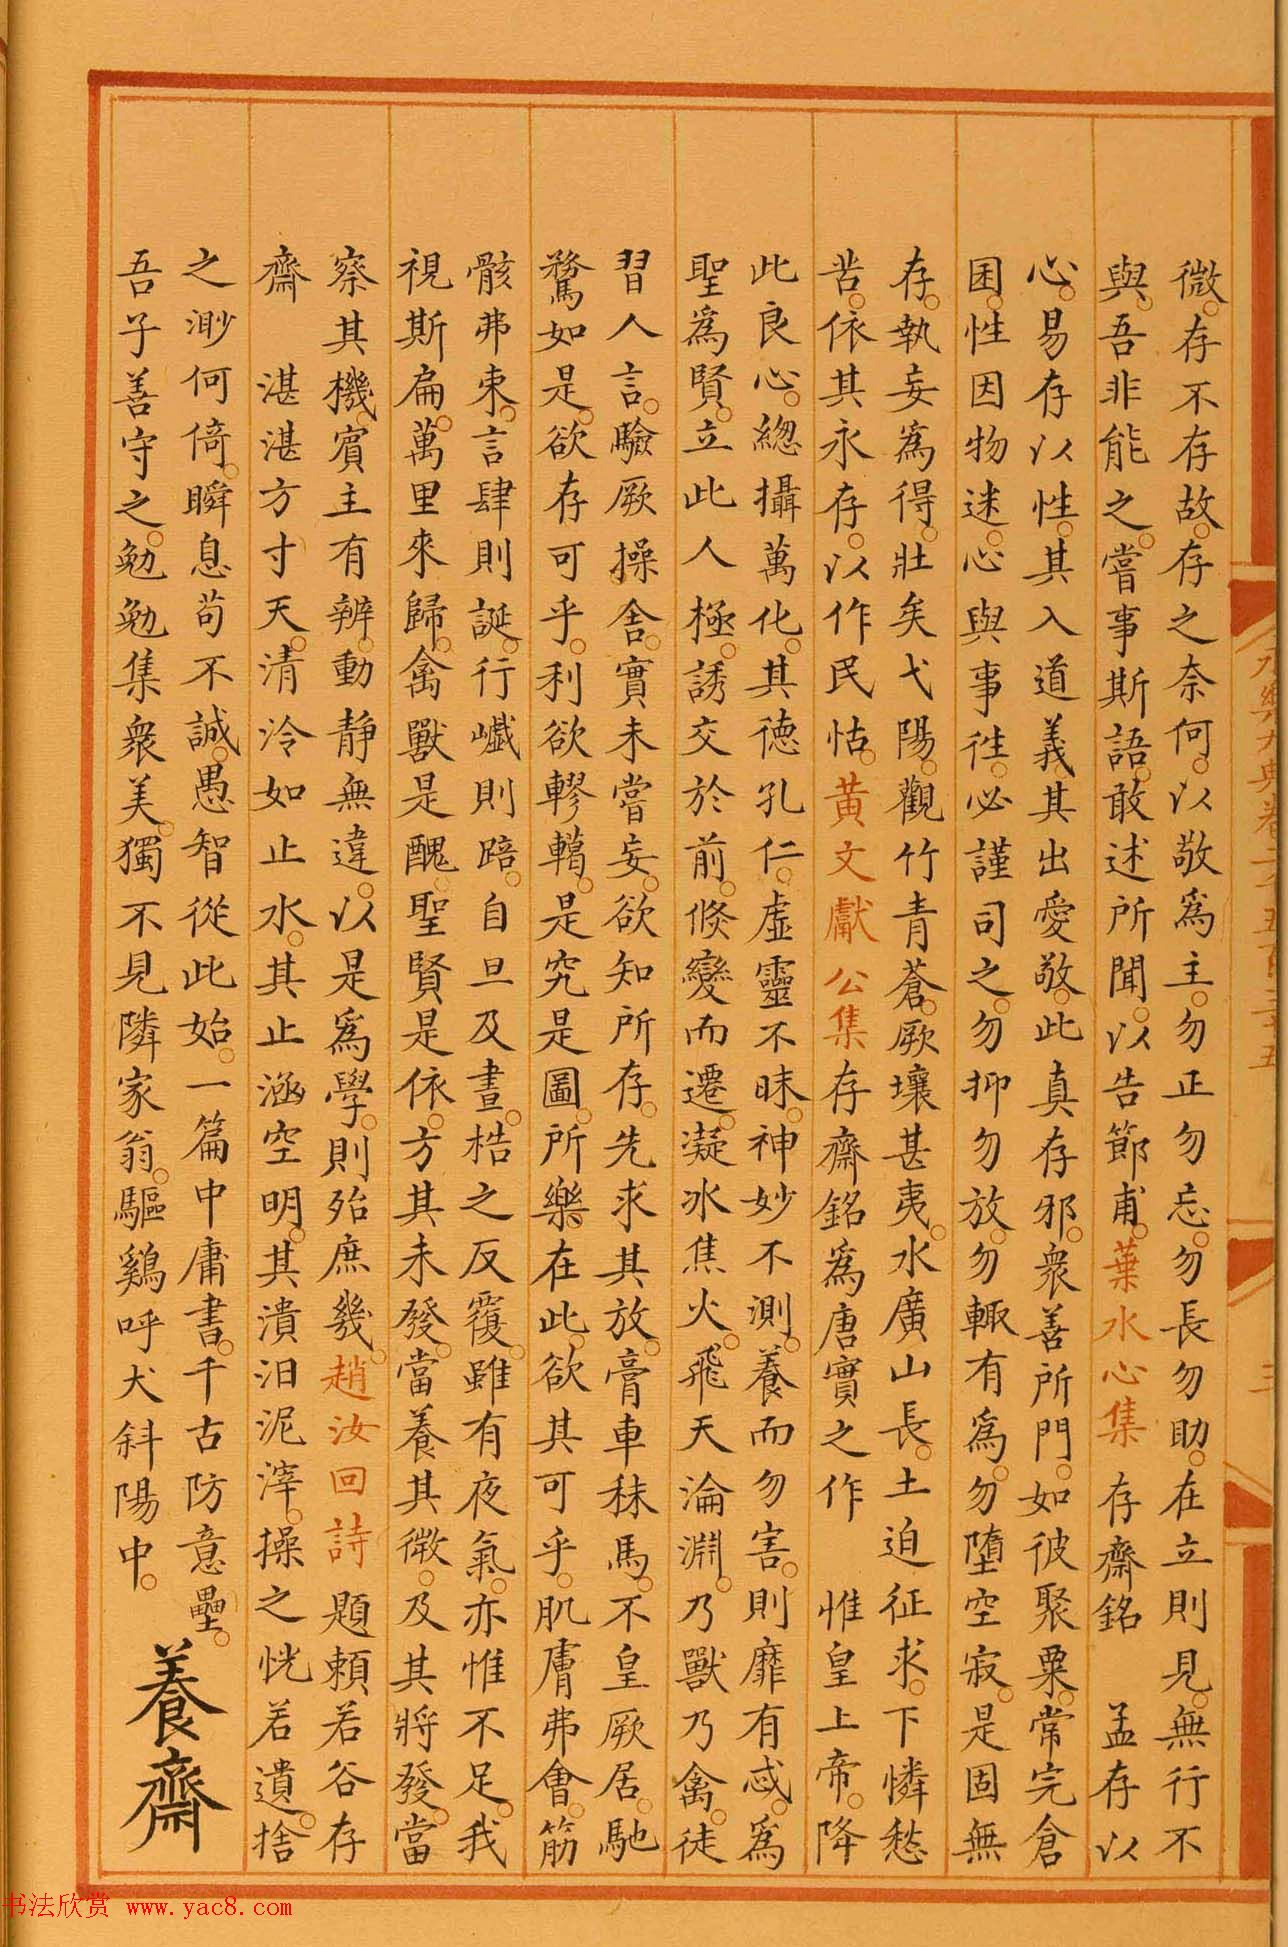 微存不存故存之奈何以敬爲主勿正勿忘勿長勿助在立則見無行不
與吾非能之嘗事斯語敢述所聞以告節甫葉水心集存齋銘 孟存以
心易存以性其入道義其出愛敬此真存邪衆善所門如彼聚粟常完倉
困性因物迷心與事徃必謹司之勿抑勿放勿輙有爲勿墮空寂是固無
存執妄爲得壯矣弋陽觀竹青蒼厥壤甚夷水廣山長土迫征求下憐愁
苦依其永存以作民怙黃文獻公集存齋銘爲唐實之作 惟皇上帝降
此良心緫攝萬化其德孔仁虛靈不昧神妙不測養而勿害則靡有忒爲
聖爲賢立此人極誘交於前倏變而遷凝冰焦火飛天淪淵乃獸乃禽徒
習人言驗厥操舍實未嘗妄欲知所存先求其放膏車秣馬不皇厥居馳
騖如是欲存可乎利欲轇轕是究是圖所樂在此欲其可乎肌膚弗會筋
骸弗束言肆則誕行巇則踣自旦及晝梏之反覆雖有夜氣亦惟不足我
視斯扁萬里來歸禽獸是醜聖賢是依方其未發當養其微及其將發當
察其機賓主有辨動靜無違以是爲學則殆庶幾趙汝回詩題賴若谷存
齋 湛湛方寸天清泠如止水其止涵空明其潰汨泥滓操之恍若遺捨
之渺何倚瞬息苟不誠愚智從此始一篇中庸書千古防意壘
吾子善守之勉勉集衆美獨不見隣家翁驅鷄呼犬斜陽中養齋
永樂大典卷二千五百三十五
三
书法欣赏 www.yac8.com